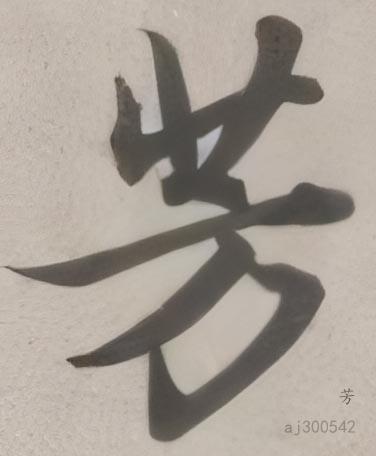 芳
芳
aj300542